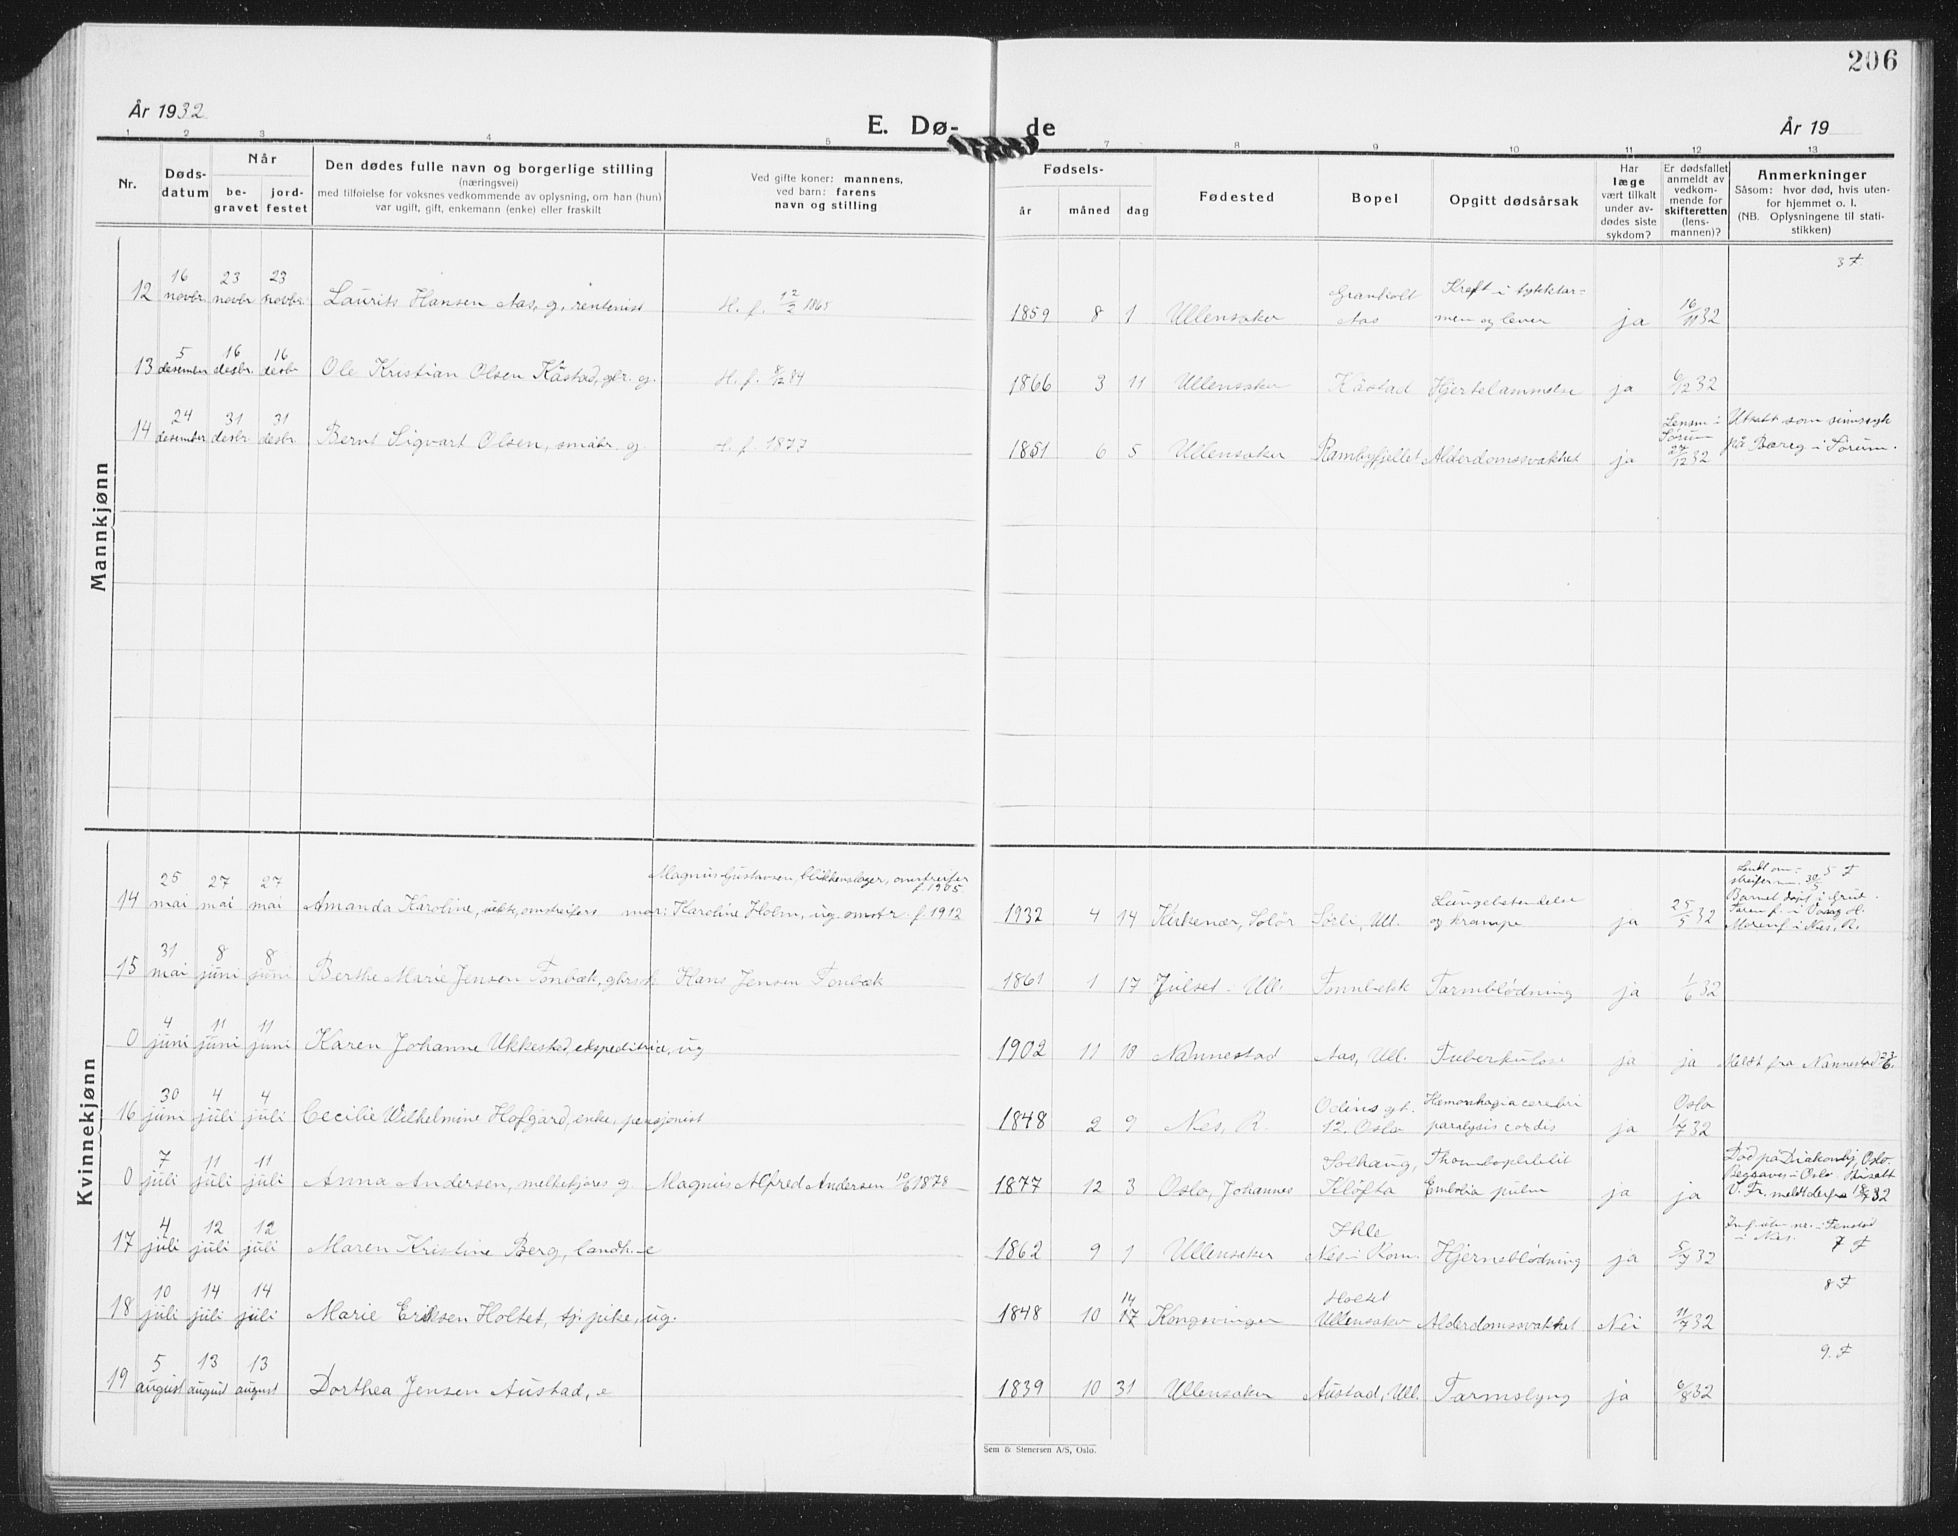 206
År 1932
E. Dø- de
År 19
1 2 3 4 5 7 8 9 10 11 12 13
Nr.
Døds-
datum
Når
be-
gravet
jord-
festet
Den dødes fulle navn og borgerlige stilling
(næringsvei)
med tilføielse for voksnes vedkommende av oplysning, om han (hun)
var ugift, gift, enkemann (enke) eller fraskilt
Ved gifte koner: mannens,
ved barn: farens
navn og stilling
Fødsels-
år måned dag
Fødested
Bopel
Opgitt dødsårsak
Har
læge
vært tilkalt
under av-
dødes siste
sykdom?
Er dødsfallet
anmeldt av
vedkom-
mende for
skifteretten
(lens-
mannen)?
Anmerkninger
Såsom: hvor død, hvis uten-
for hjemmet o. l.
(NB. Oplysningene til stati-
stikken)
Mannkjønn
3 F
12 16 novbr. 23 novbr. 23 novbr. Laurits Hansen Aas, g, rentenist H. f. 12/2 1865 1859 8 1 Ullensaker Granholt Aas Kreft i tykktar=
men og lever ja 16/11 32
13 5 desember 16 desbr. 16 desbr Ole Kristian Olsen Kåstad, gbr. g. H. f. 8/2 84 1866 3 11 Ullensaker Kåstad Hjertelammelse ja 6/12 32
14 24 desember 31 desbr 31 desbr Bernt Sigvart Olsen, småbr. g. H. f. 1877 1851 6 5 Ullensaker Rambyfjellet Alderdomssvakhet ja Lensm i
Sørum
27/12 32 Utsatt som sinnssyk
på Bareg i Sørum.
Kvinnekjønn
14 25 mai 27 mai 27 mai Amanda Karoline, uekte, omstreifers Magnus Gustavsen, blikkenslager, omstreifer
f. 1905
mor: Karoline Holm, ug. omstr. f. 1912 1932 4 14 Kirkenær, Solør Sørli, Ull. Lungebetendelse
og krampe ja 25/5 32 5 F
Barnet døpt i Grue.
Faren f. i Vang H.
Moren f. i Nes, R.
15 31 mai 8 juni 8 juni Berthe Marie Jensen Tonbæk, gbrsk Hans Jensen Tonbæk 1861 1 17 Julset i Ull. Tonnbekk Tarmblødning ja 1/6 32
0 4 juni 11 juni 11 juni Karen Johanne Ukkestad, ekspeditrice, ug 1902 11 18 Nannestad Aas, Ull. Tuberkulose ja ja Meldt fra Nannestad 23/6.
16 30 juni 4 juli 4 juli Cecilie Wilhelmine Hofgård, enke, pensjonist 1848 2 9 Nes, R. Odins gt.
12, Oslo Hæmorrhagia cerebri
paralysis cordis ja Oslo
1/7 32
0 7 juli 11 juli 11 juli Anna Andersen, melkekjøres g. Magnus Alfred Andersen 10/6 1878 1877 12 3 Oslo, Johannes Solhaug,
Kløfta Thrombophlebit
Embolia pulm ja ja Død på Diakonhj. Oslo.
Begraves i Oslo.
V. Fr. meldt derfra 18/7 32
17 4 juli 12 juli 12 juli Maren Kristine Berg, landh. e 1862 9 1 Ullensaker Ihle
Nes i Rom. Hjerneblødning ja 5/7 32 Innf. uten nr. i Fenstad
i Nes. 7 F
18 10 juli 14 juli 14 juli Marie Eriksen Holtet, tj. pike, ug. 1848 10 14
17 Kongsvinger Holtet
Ullensaker Alderdomssvakhet Nei 11/7 32 8 F
19 5 august 13 august 13 august Dorthea Jensen Austad, e 1839 10 31 Ullensaker Austad, Ull. Tarmslyng ja 6/8 32 9. F
Sem & Stenersen A/S, Oslo.